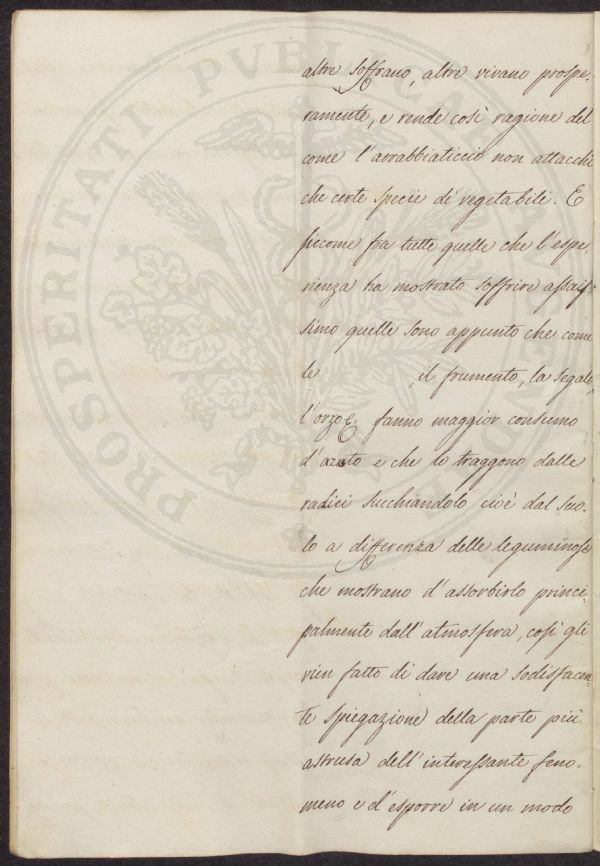 altre soffrano, altre vivano prospe-
ramente, e rende così ragione del
come l'arrabbiaticcio non attacchi
che certe specie di vegetabili. E
siccome fra tutte quelle che l'espe-
rienza ha mostrato soffrire assais-
simo quelle sono appunto che come
le , il frumento, la segale,
l'orzo &c. fanno maggior consumo
d'azoto e che lo traggono dalle
radici succhiandolo cioè dal suo-
lo a differenza delle leguminose
che mostrano d'assorbirlo princi-
palmente dall'atmosfera, così gli
vien fatto di dare una sodisfacen-
te spiegazione della parte più
astrusa dell'interessante feno-
meno e d'esporre in un modo
PROSPERITATI PUBLICAE